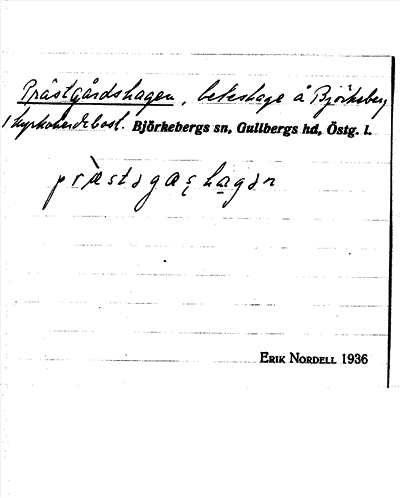 Prästgårdshagen, beteshage å Björkeberg
1 kyrkoherdebost. Björkebergs sn, Gullbergs hd, Östg. l.
ERIK NORDELL 1936